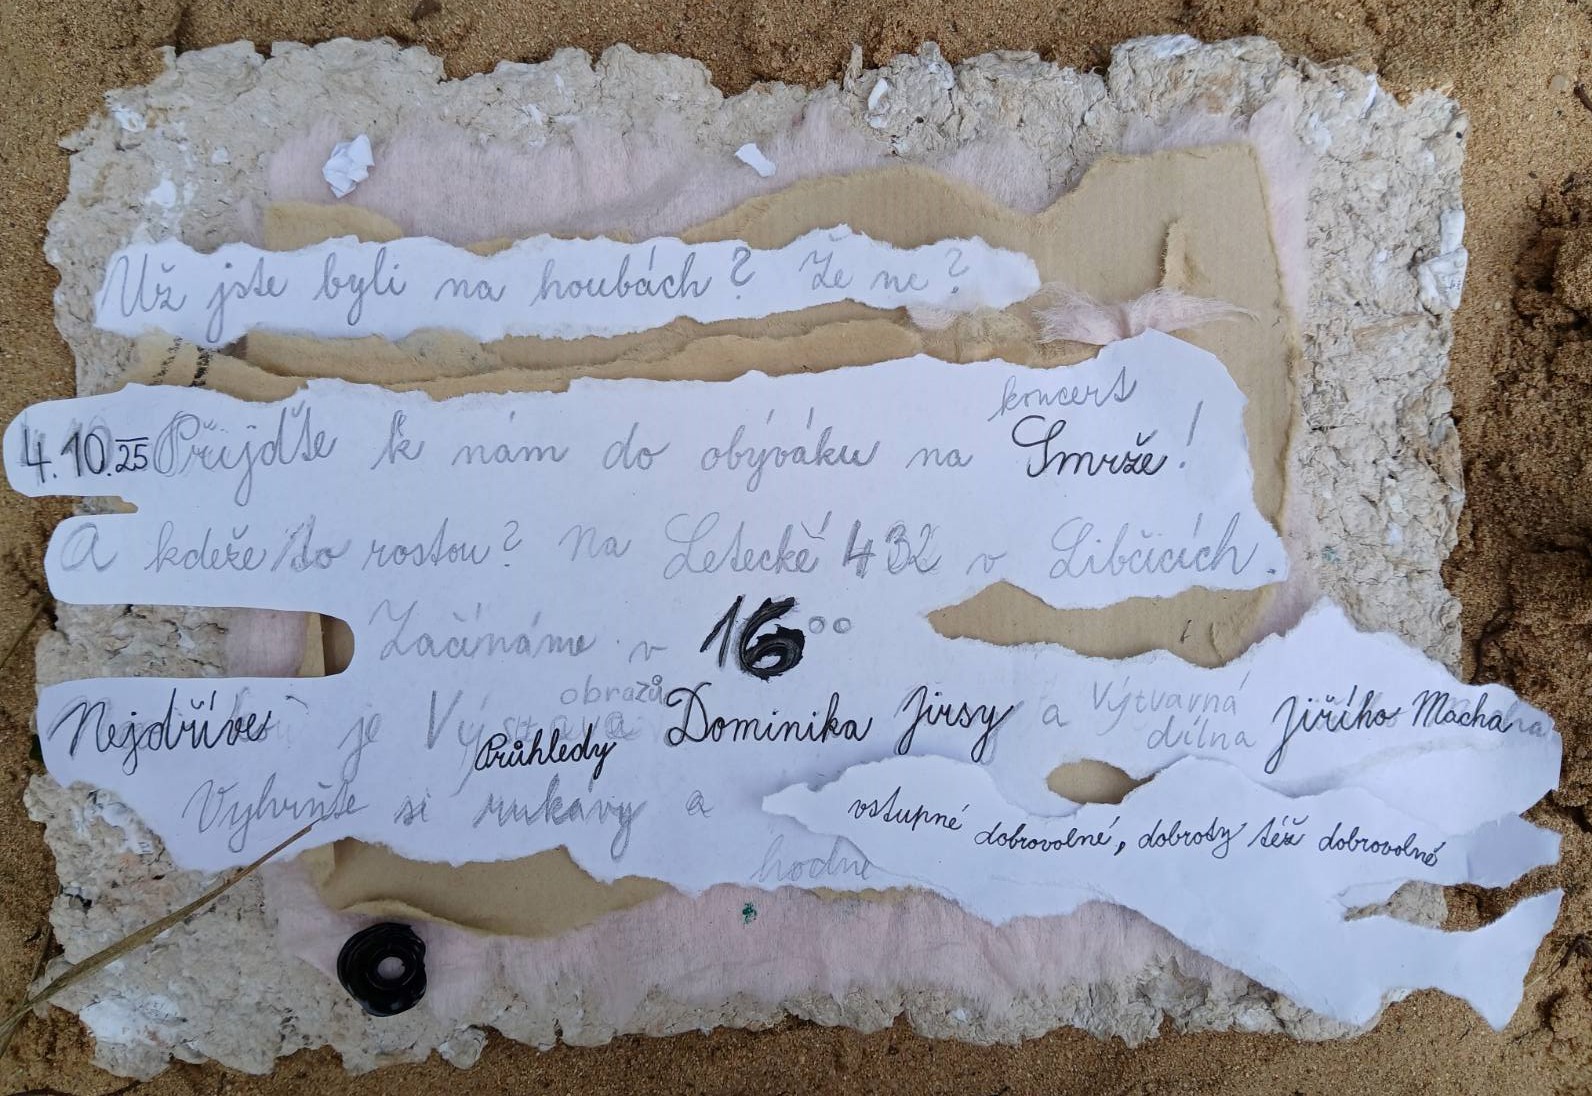 Už jste byli na houbách? Že ne?
koncert
4.10.25 Přijďte k nám do obýváku na Smrže!
A kdeže to rostou? Na Letecké 432 v Libčicích.
Začínáme v 16⁰⁰
obrazů
Nejdříve je Výstava Dominika Jirsy a Výtvarná dílna Jiřího Macha
Průhledy
Vyhrňte si rukávy a
vstupné dobrovolné, dobroty též dobrovolné
hodně